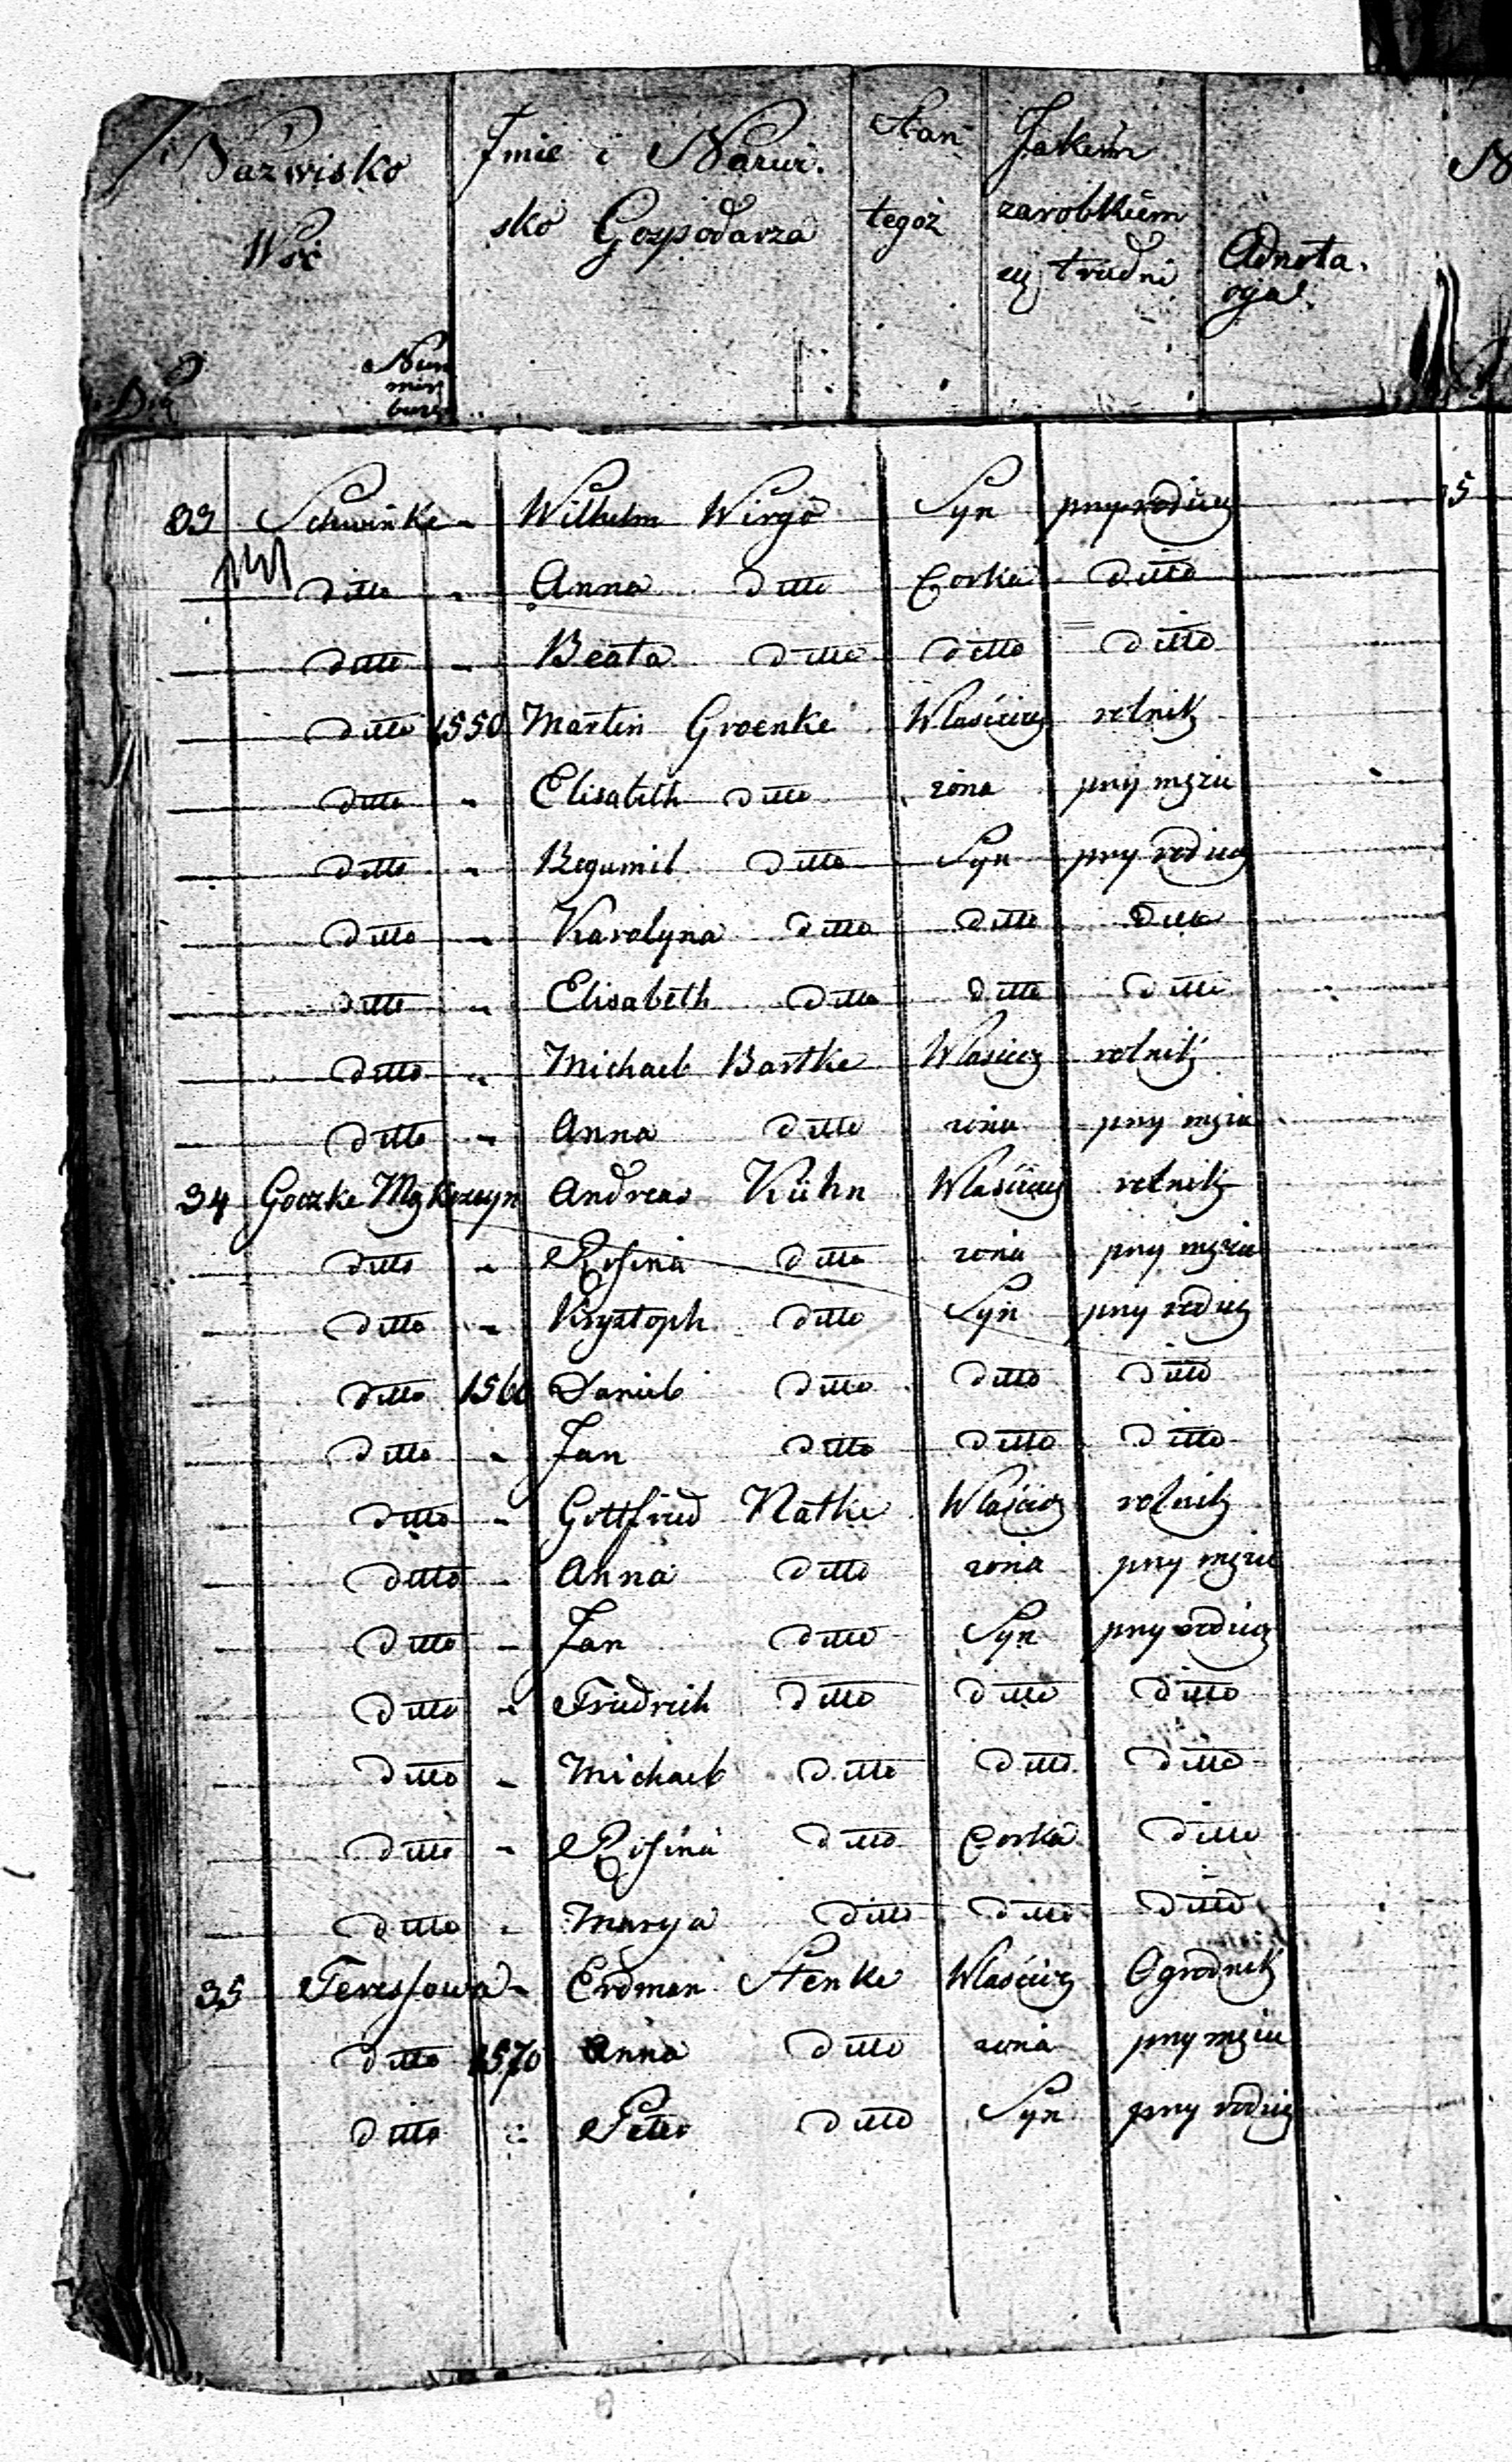 Nazwisko Wsi Num
Imie i Nazwisko Gospodarza
Stan tegoż
Jakiém zarobkiem się trudni
Adnotacya.
33 Schwinke " Wilhelm Wirgo Syn przy rodzicy
ditto " Anna ditto Corka ditto
ditto " Beata ditto ditto ditto
ditto 1550 Martin Groenke Właściciel rolnik
ditto " Elisabeth ditto zona przy mężu
ditto " Bogumil ditto Syn przy rodzicy
ditto " Karolyna ditto ditto ditto
ditto " Elisabeth ditto ditto ditto
ditto " Michael Bartke Właściciel rolnik
ditto " Anna ditto zona przy mężu
34 Goczke Andreas Kühn Właściciel rolnik
ditto " Rosina ditto zona przy mężu
ditto " Krysztoph ditto Syn przy rodzicy
ditto 1560 Daniel ditto ditto ditto
ditto " Jan ditto ditto ditto
ditto " Gottfried Natke Właściciel rolnik
ditto " Anna ditto zona przy mężu
ditto " Jan ditto Syn przy rodzicy
ditto " Friedrich ditto ditto ditto
ditto " Michael ditto ditto ditto
ditto " Rosina ditto Corka ditto
ditto " Marya ditto ditto ditto
35 Teressowa " Erdman Stenke Właściciel Ogrodnik
ditto 1570 Anna ditto zona przy mężu
ditto " Peter ditto Syn przy rodzicy